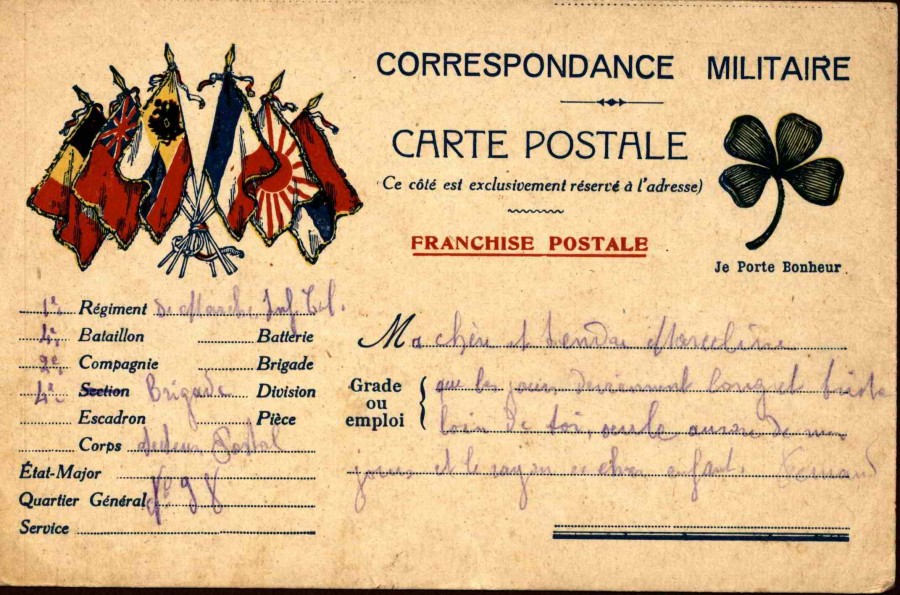 CORRESPONDANCE MILITAIRE
CARTE POSTALE
(Ce côté est exclusivement réservé à l'adresse)
FRANCHISE POSTALE
Je Porte Bonheur
1er Régiment de Marche Inf
4e Bataillon Batterie
2e Compagnie Brigade
4e Section Brigade Division
Escadron Pièce
Corps Secteur Postal
État-Major
Quartier Général No 98
Service
Ma chère et tendre Marceline
Grade ou emploi
que les jours deviennent long et triste
loin de toi, seule aurore de mes
jours et le rayon ce cher enfant. Fernand